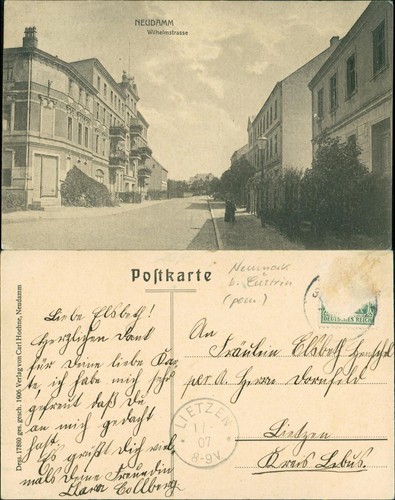 NEUDAMM
Wilhelmstrasse
Postkarte
Neumark
b. Cüstrin
(pom.)
Depr. 17880 ges. gesch. 1906 Verlag von Carl Hoehne, Neudamm
Liebe Elsbeth!
Herzlichen Dank
für Deine liebe Kar-
te, ich habe mich sehr
gefreut daß Du
an mich gedacht
hast.
Es grüßt Dich viel-
mals Deine Freundin
Clara Collberg
DEUTSCHES REICH
An
Fräulein Elsbeth
per A. Herrn Dornfeld
LIETZEN
11
07
8-9V
Lietzen
Kreis Lebus.